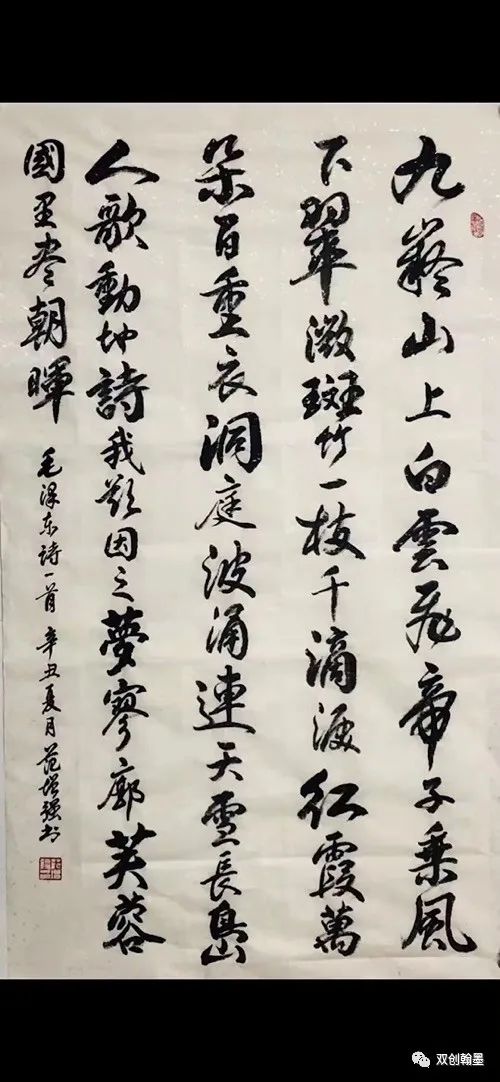 九嶷山上白雲飛帝子乘風
下翠微斑竹一枝千滴淚紅霞萬
朵百重衣洞庭波涌連天雪長島
人歌動地詩我欲因之夢寥廓芙蓉
國里盡朝暉
毛澤东詩一首 辛丑夏月范增强书
双创翰墨